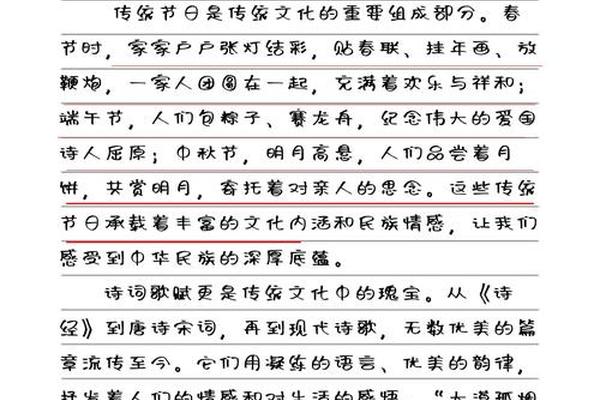 传统节日是传统文化的重要组成部分。春
节时,家家户户张灯结彩,贴春联、挂年画、放
鞭炮,一家人团圆在一起,充满着欢乐与祥和;
端午节,人们包粽子、赛龙舟,纪念伟大的爱国
诗人屈原;中秋节,明月高悬,人们品尝着月
饼,共赏明月,寄托着对亲人的思念。这些传统
节日承载着丰富的文化内涵和民族情感,让我们
感受到中华民族的深厚底蕴。
诗词歌赋更是传统文化中的瑰宝。从《诗
经》到唐诗宋词,再到现代诗歌,无数优美的篇
章流传至今。它们用凝练的语言、优美的韵律,
抒发着人们的情感和对生活的感悟。“大漠孤烟